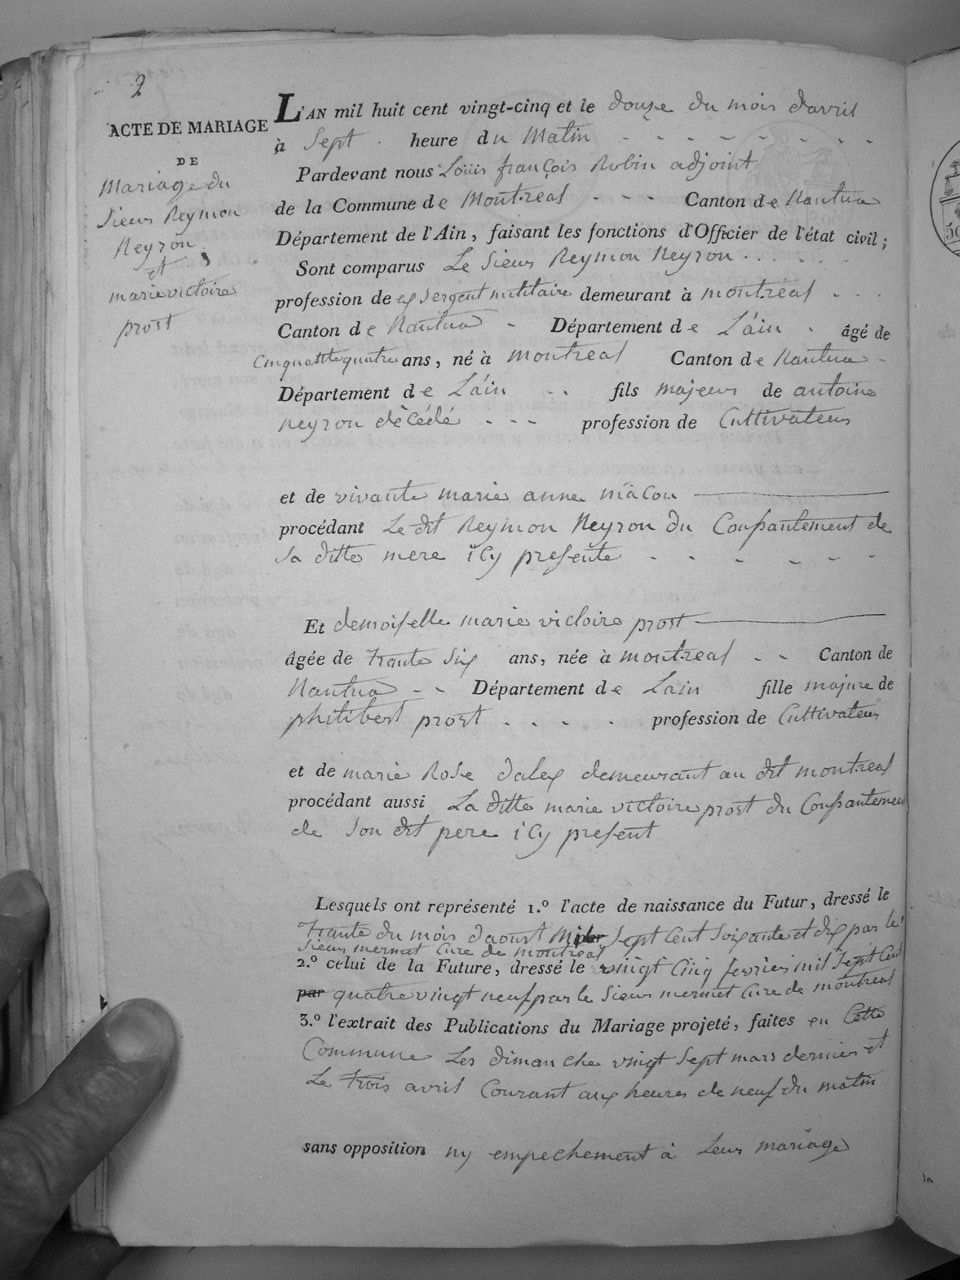 2
ACTE DE MARIAGE
DE
Mariage du
Sieur Reymon
Neyron
et
marie victoire
prost
L'AN mil huit cent vingt-cinq et le douze du mois davril
à Sept heure du Matin
Pardevant nous Louis françois Robin adjoint
de la Commune de Montreal Canton de Nantua
Département de l'Ain, faisant les fonctions d'Officier de l'état civil;
Sont comparus Le Sieur Reymon Neyron
profession de ex sergent militaire demeurant à montréal
Canton de Nantua Département de L'áin âgé de
Cinquattequatre ans, né à Montreal Canton de Nantua
Département de L'áin fils majeur de antoine
Neyron dècédé profession de Cultivateur
et de vivante marie anne mâcon
procédant Le dit Reymon Neyron du Conpantement de
Sa ditte mere icy presente
Et demoiselle marie victoire prost
âgée de trante Six ans, née à montreal Canton de
Nantua Département de Lain fille majure de
philibert prost profession de Cultivateur
et de marie Rose dalex demeurant au dit montreal
procédant aussi La ditte marie victoire prost du Conpantement
de Son dit pere icy present
Lesquels ont représenté 1.º l'acte de naissance du Futur, dressé le
trante du mois daoust Sept Cent Soixante et dix par le
Sieur mermet Cure de montreal
2.º celui de la Future, dressé le vingt Cinq fevrier mil Sept Cent
par quatre vingt neuf par le Sieur mermet Cure de montreal
3.º l'extrait des Publications du Mariage projeté, faites en Cette
Commune Les dimanche vingt Sept mars dernier et
Le trois avril Courant aux heures de neuf du matin
sans opposition ny empechement à Leur mariage